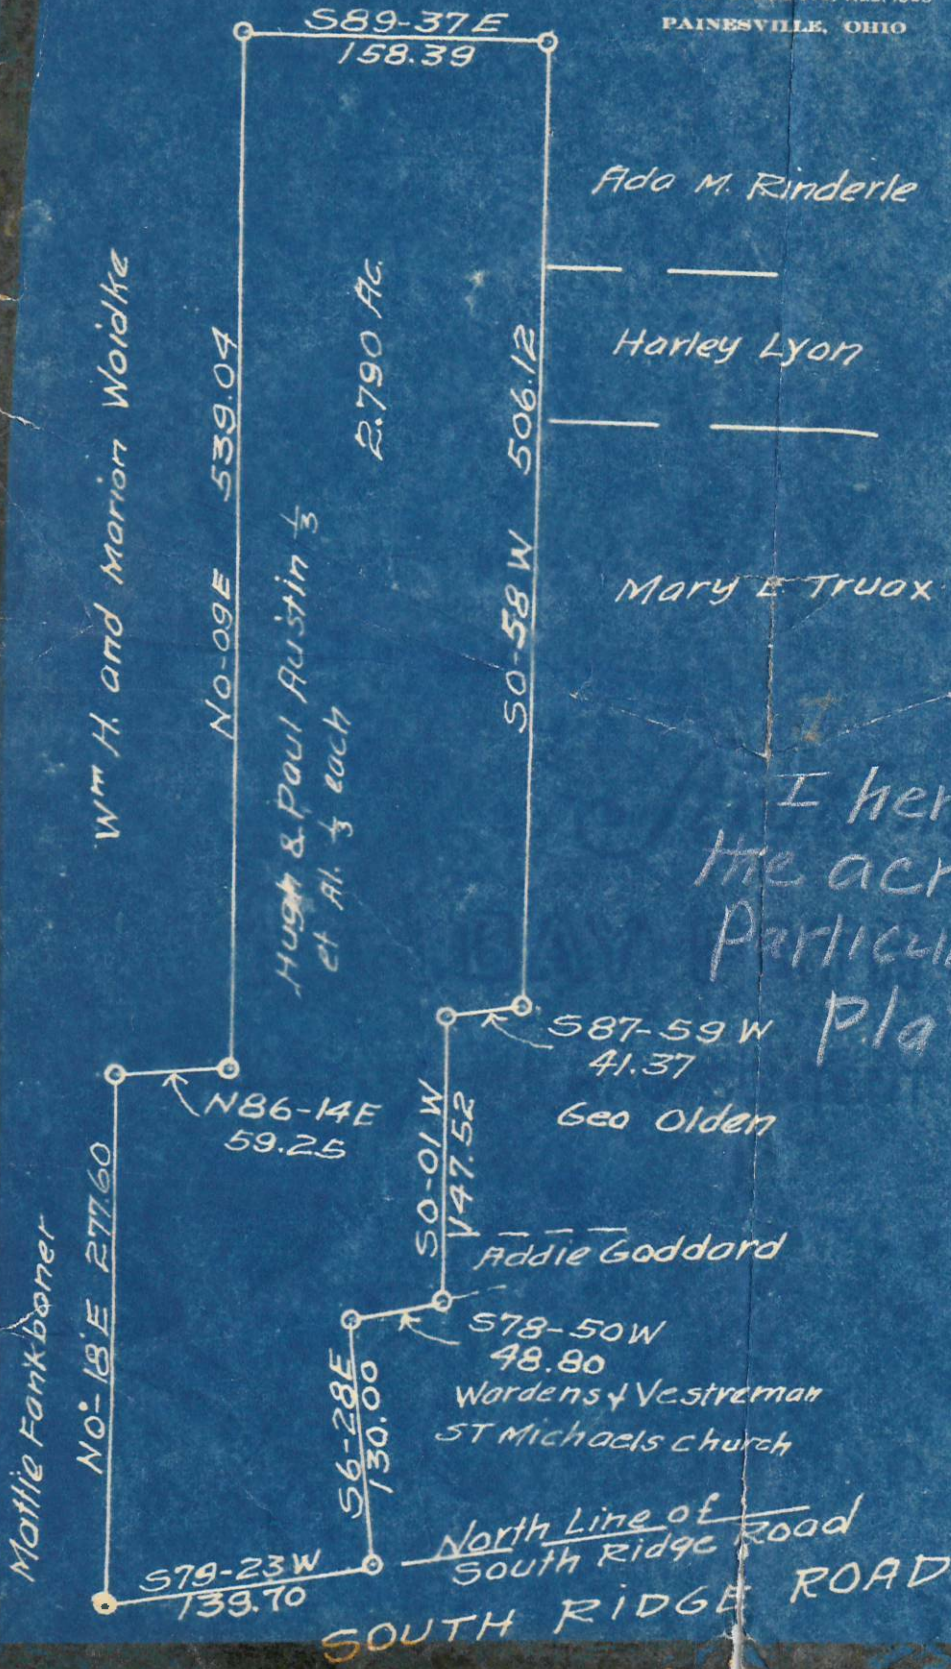 PAINESVILLE, OHIO
S89-37E
158.39
Ada M. Rinderle
Harley Lyon
Mary E Truax
Wm H. and Marion Woidke
N0-09E 539.04
2.790 Ac.
S0-58 W 506.12
Hugh & Paul Austin 1/3
et Al. 1/3 each
I
I her
the acr
Particul
Pla
S87-59 W
41.37
Geo Olden
N86-14E
59.25
S0-01 W
147.52
Addie Goddard
S78-50W
48.80
Wardens & Vestreman
ST Michaels Church
Mattie Fankboner
N0°-18'E 277.60
S6-28E
130.00
North Line of
South Ridge Road
S79-23W
139.70
SOUTH RIDGE ROAD